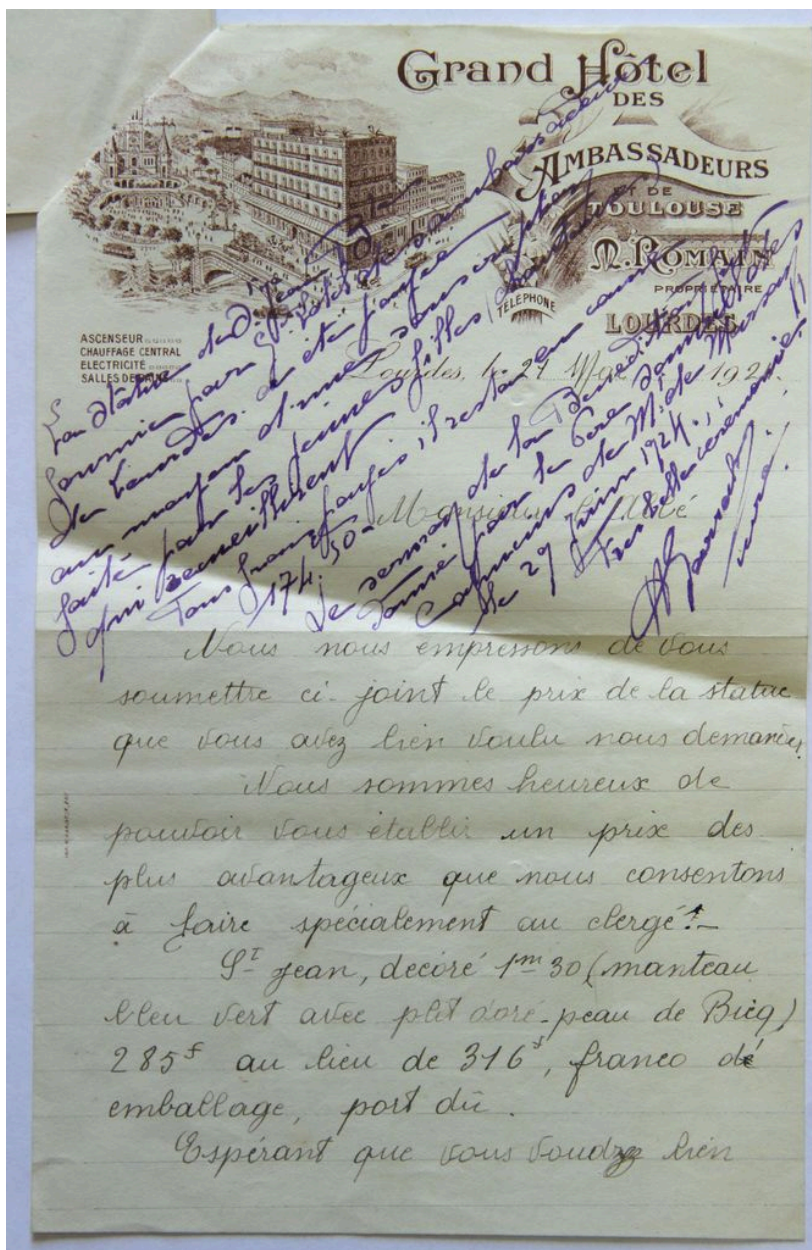 Grand Hôtel
DES
AMBASSADEURS
ET DE
TOULOUSE
M. ROMAIN
PROPRIÉTAIRE
TÉLÉPHONE
LOURDES
ASCENSEUR
CHAUFFAGE CENTRAL
ELECTRICITÉ
SALLES DE BAINS
Lourdes, le 27 Mai 192
Monsieur l'Abbé
La statue de St Jean Bte
fournie par Gd Hôtel des ambassadeurs
de Lourdes a été payée
au moyen d'une souscription
faite par les jeunes filles chanteuses
qui recueillirent
Tous frais payés, il resta en caisse
174,50
Le sermon de la Bénédiction fut
donné par le Père
de Mt de Marsan
le 29 juin 1924.
Très belle cérémonie!!
curé
Nous nous empressons de vous
soumettre ci-joint le prix de la statue
que vous avez bien voulu nous demander.
Nous sommes heureux de
pouvoir vous établir un prix des
plus avantageux que nous consentons
à faire spécialement au clergé:-
St Jean, décoré 1m 30 (manteau
bleu vert avec plet doré-peau de Bicq)
285f au lieu de 316f, franco de
emballage, port dû.
Espérant que vous voudrez bien